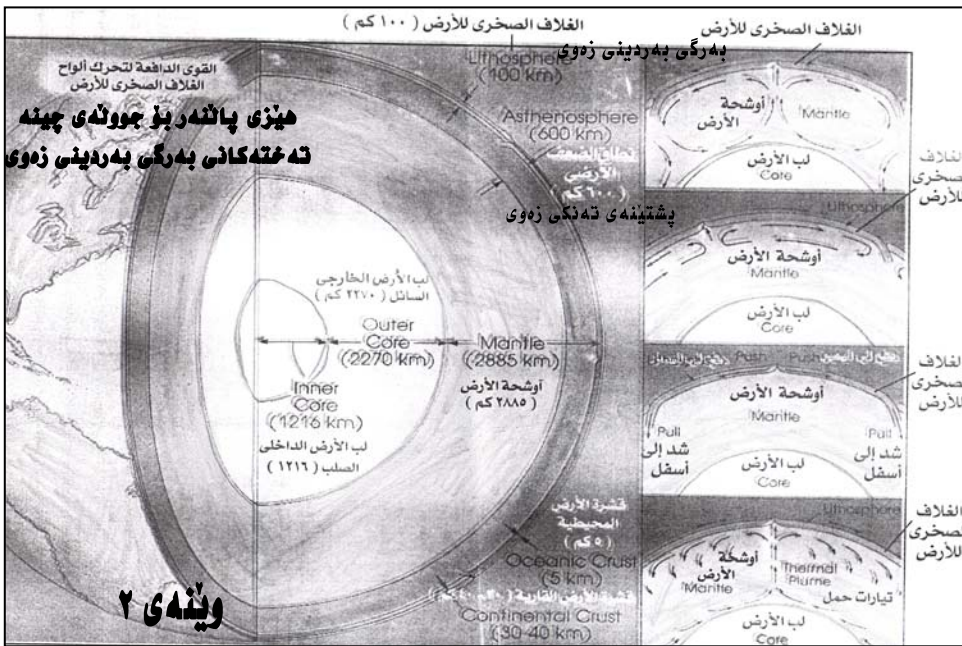 الغلاف الصخرى للأرض ( ١٠٠ كم )
Lithosphere
(100 km)
بەرگی بەردینی زەوی
القوى الدافعة لتحرك ألواح
الغلاف الصخرى للأرض
هێزی پاڵنەر بۆ جووڵەی چینە
تەختەکانی بەرگی بەردینی زەوی
Asthenosphere
(600 km)
نطاق الضعف
الأرضي
(٦٠٠ كم)
پشتێنەی تەنکی زەوی
لب الأرض الخارجى
السائل ( ٢٢٧٠ كم )
Outer
Core
(2270 km)
Mantle
(2885 km)
أوشحة الأرض
( ٢٨٨٥ كم )
Inner
Core
(1216 km)
لب الأرض الداخلى
الصلب ( ١٢١٦ كم )
قشرة الأرض
المحيطية
( ٥ كم )
Oceanic Crust
(5 km)
قشرة الأرض القارية
Continental Crust
(30-40 km)
وێنەی ٢
الغلاف الصخرى للأرض
أوشحة
الأرض
Mantle
لب الأرض
Core
الغلاف
الصخرى
للأرض
Lithosphere
أوشحة الأرض
Mantle
لب الأرض
Core
الغلاف
الصخرى
للأرض
Push
Push
أوشحة الأرض
Mantle
Pull
شد إلى
أسفل
Pull
شد إلى
أسفل
لب الأرض
Core
الغلاف
الصخرى
للأرض
Lithosphere
أوشحة
الأرض
Mantle
Thermal
Plume
تيارات حمل
لب الأرض
Core